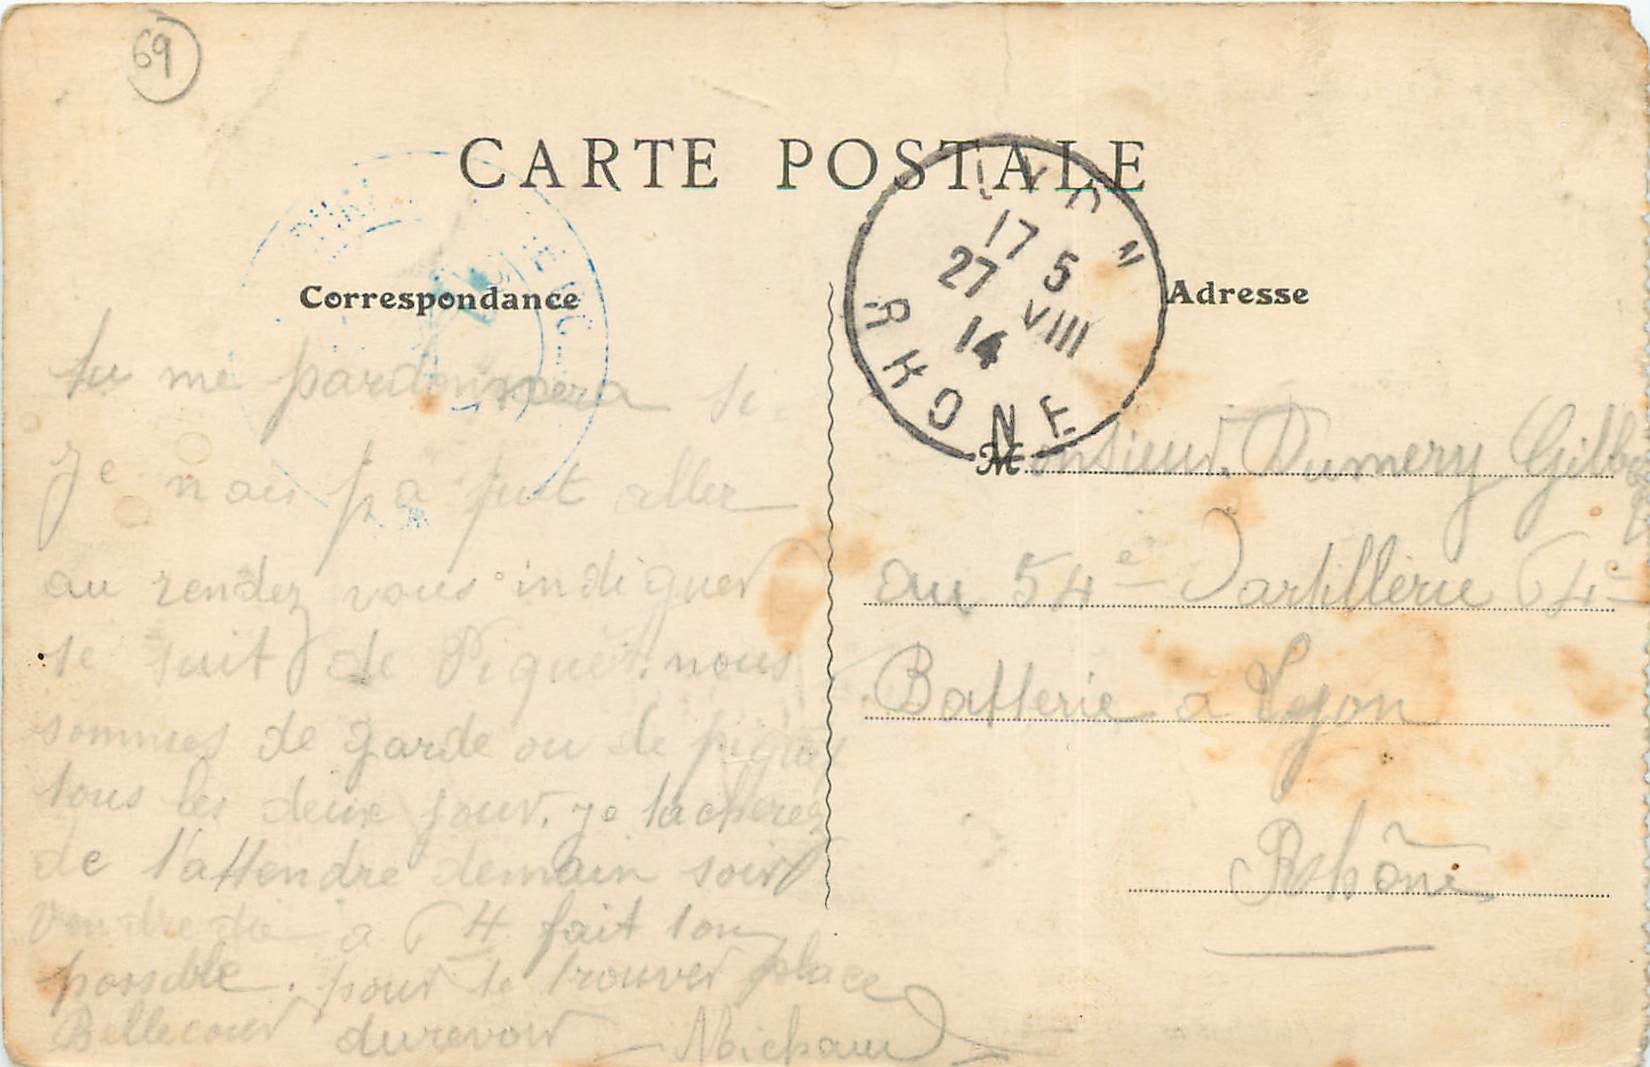 69
CARTE POSTALE
LYON
17 5
27 VIII
14
RHONE
Correspondance
Adresse
tu me pardonnera si
je nais pa put aller
au rendez vous indiquer
je suit de Piquet. nous
sommes de garde ou de piquet
tous les deux jour. je tacherez
de t'attendre demain soir
vendredie a 64 fait ton
possible. pour te trouver place
Bellecour aurevoir Michaud
Monsieur Dumery Gilbert
au 54e Dartillerie 64e
Batterie a Lyon
Rhône